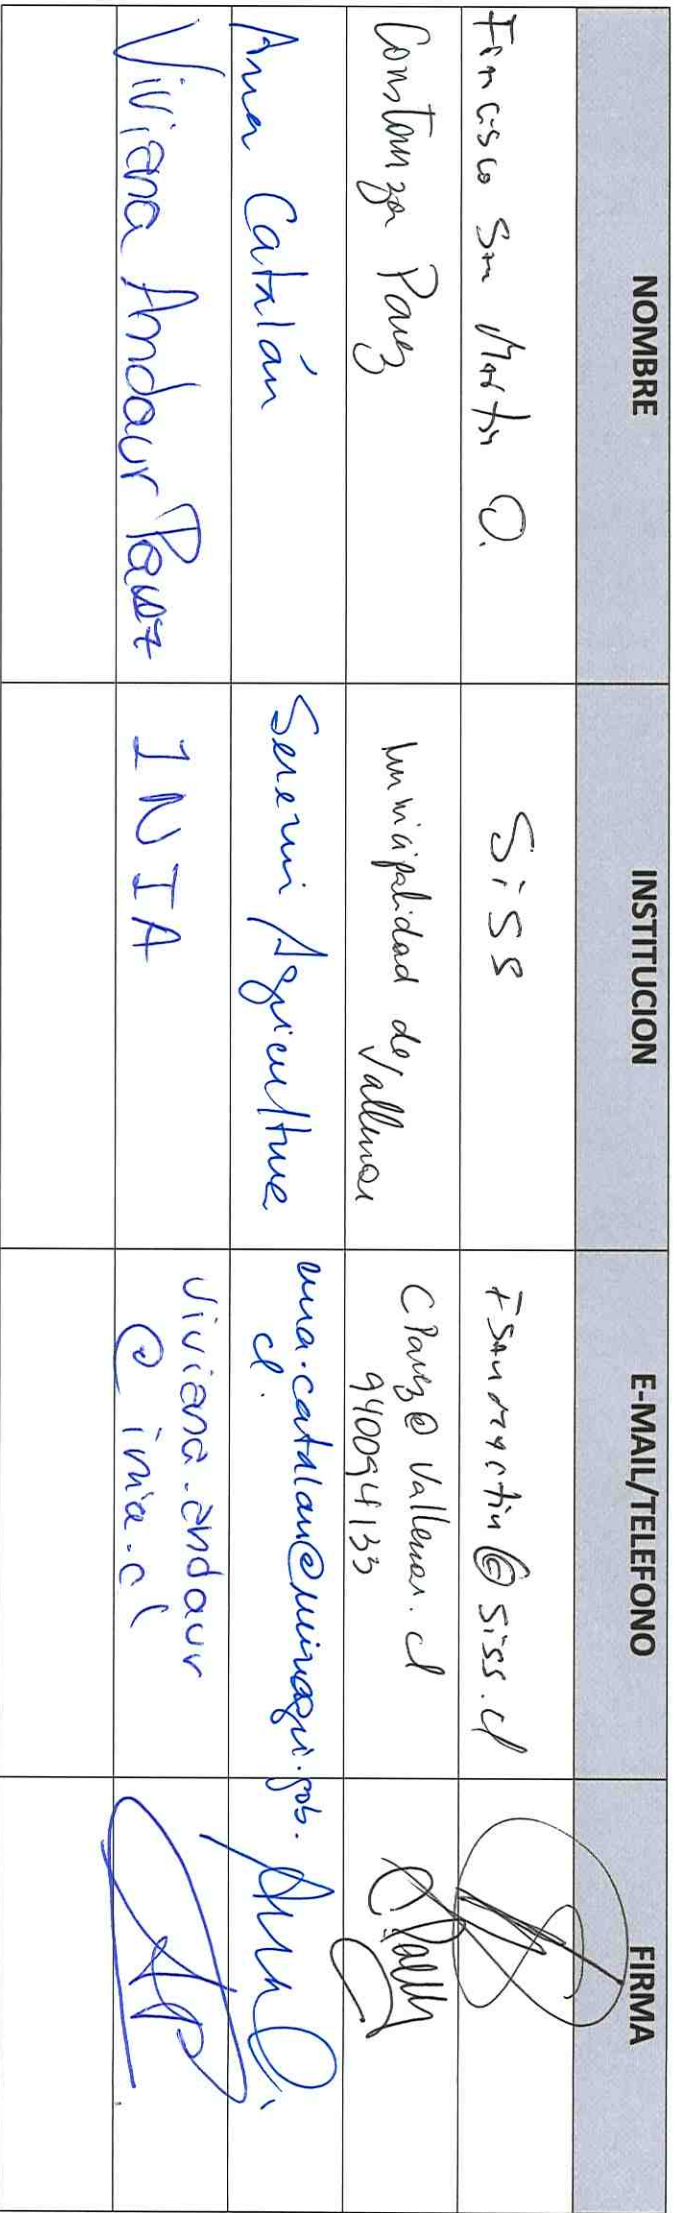 NOMBRE INSTITUCION E-MAIL/TELEFONO FIRMA
Francisco San Martin O. Siss Fsanmartin@siss.cl
Constanza Paez Municipalidad de Vallenar CPaez@Vallenar.cl
940094133
Ana Catalán Seremi Agricultura ana.catalan@minagri.gob.
cl.
Viviana Andaur Paez INIA viviana.andaur
@inia.cl